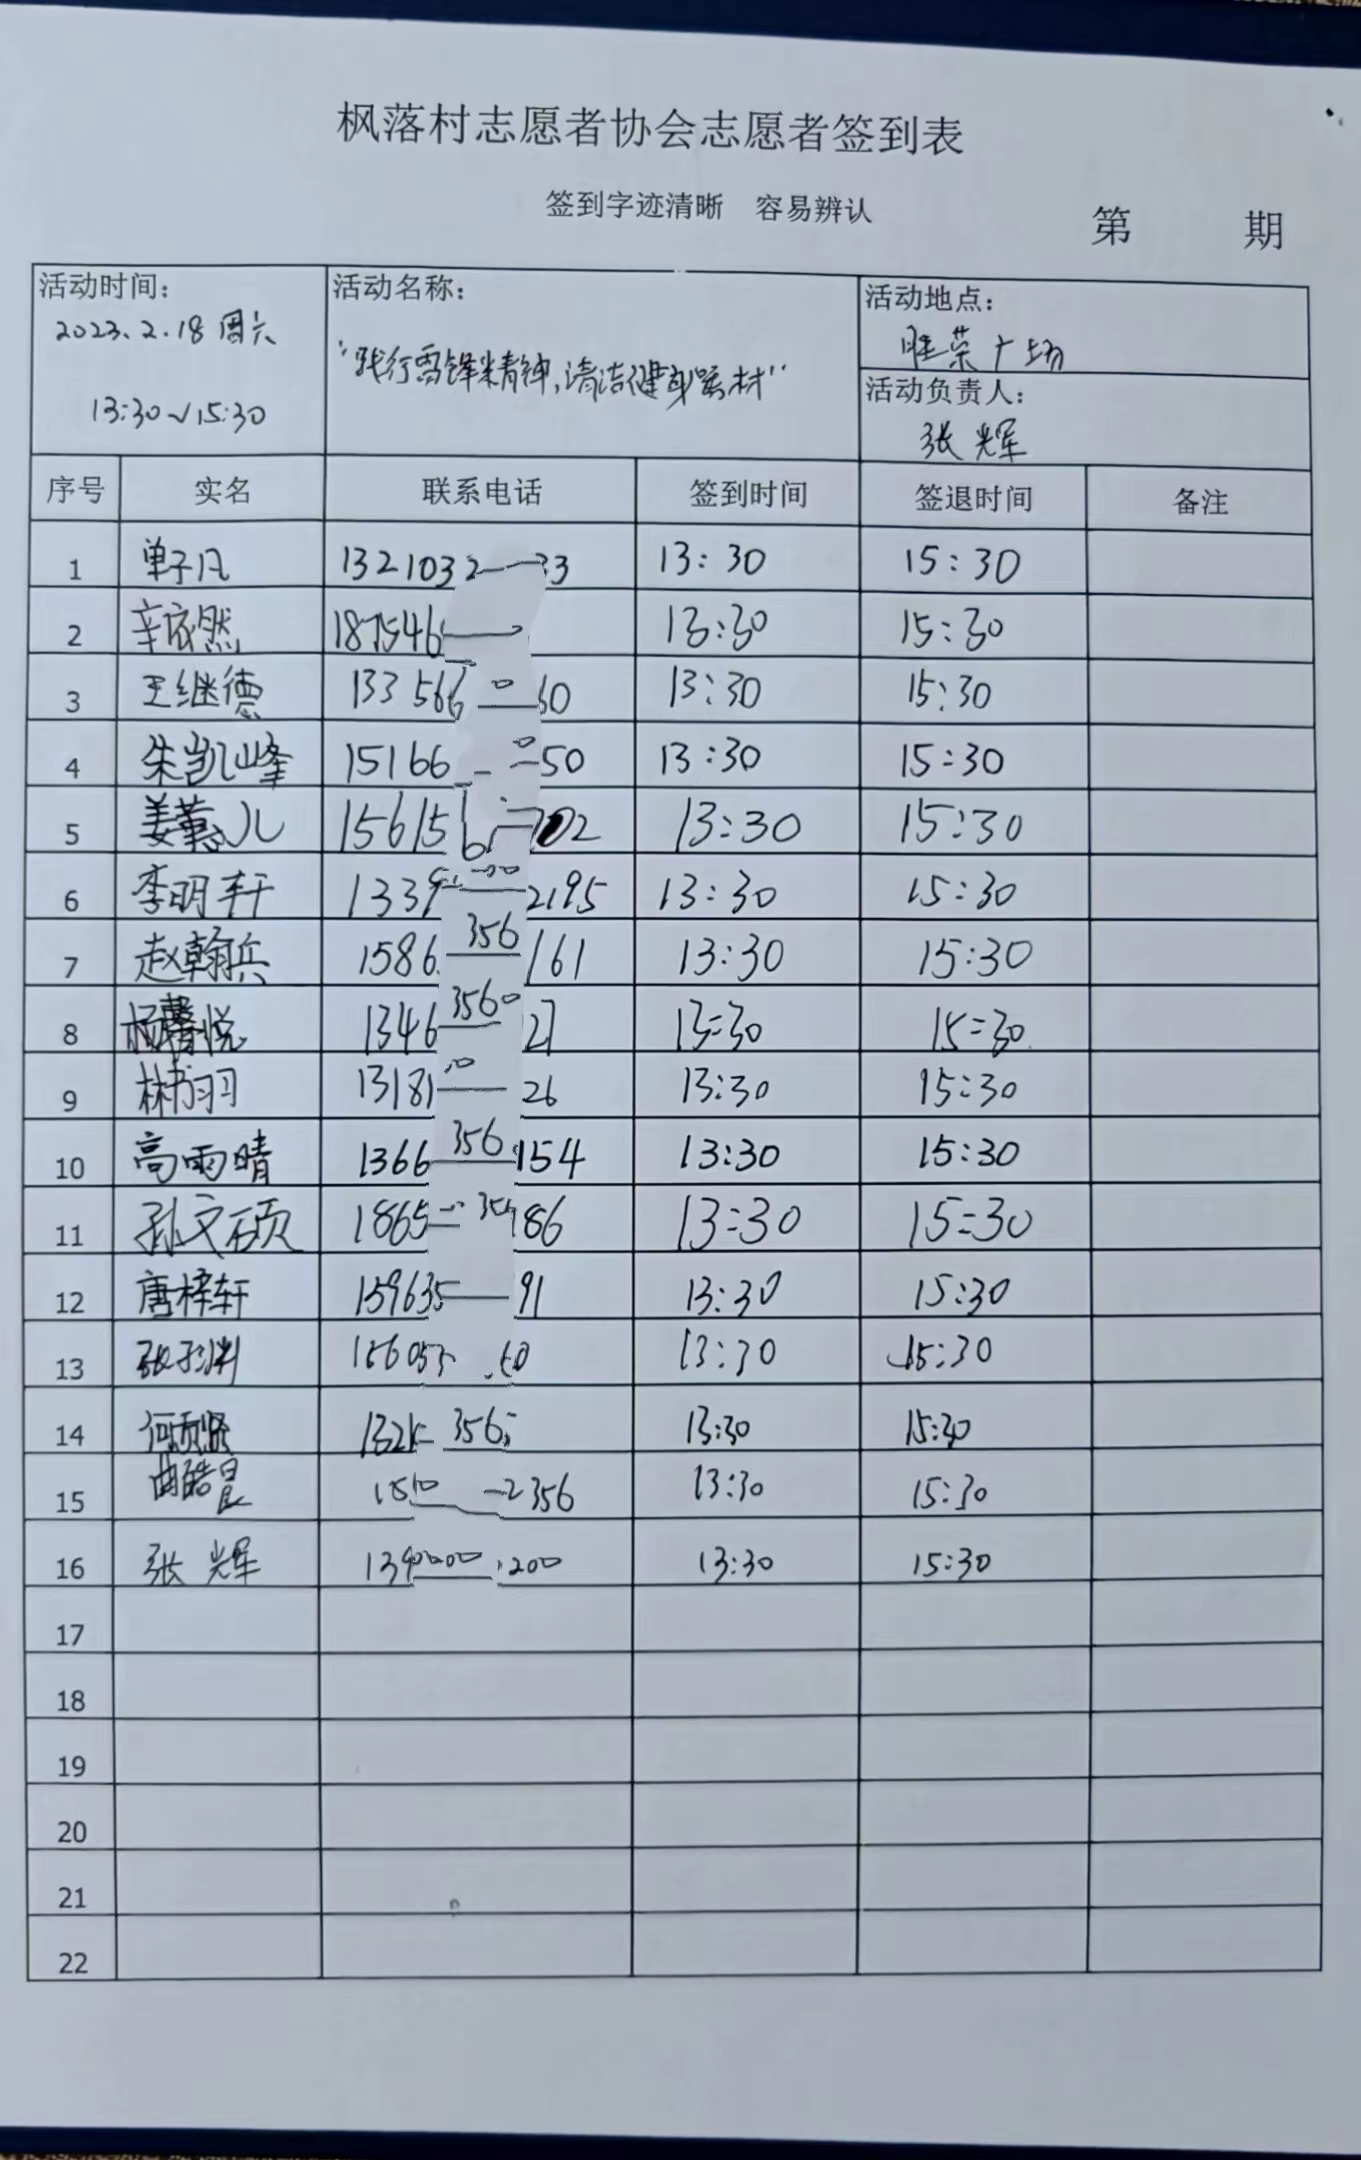 枫落村志愿者协会志愿者签到表
签到字迹清晰 容易辨认
第 期
活动时间:
2023.2.18 周六
13:30~15:30
活动名称:
"践行雷锋精神,清洁健身器材"
活动地点:
旺荣广场
活动负责人:
张辉
序号 实名 联系电话 签到时间 签退时间 备注
1 单子凡 1321032 33 13:30 15:30
2 辛依然 187546 13:30 15:30
3 王继德 133566 60 13:30 15:30
4 朱凯峰 15166 50 13:30 15:30
5 姜蕙儿 15615 02 13:30 15:30
6 李明轩 1339 2195 13:30 15:30
7 赵翰兵 1586 356 161 13:30 15:30
8 杨馨悦 1346 3560 27 13:30 15:30
9 林书羽 13181 26 13:30 15:30
10 高雨晴 1366 356 154 13:30 15:30
11 孙文硕 1865 186 13:30 15:30
12 唐梓轩 159635 91 13:30 15:30
13 张 13:30 15:30
14 何 132 356 13:30 15:30
15 曲皓昆 2356 13:30 15:30
16 张辉 200 13:30 15:30
17
18
19
20
21
22